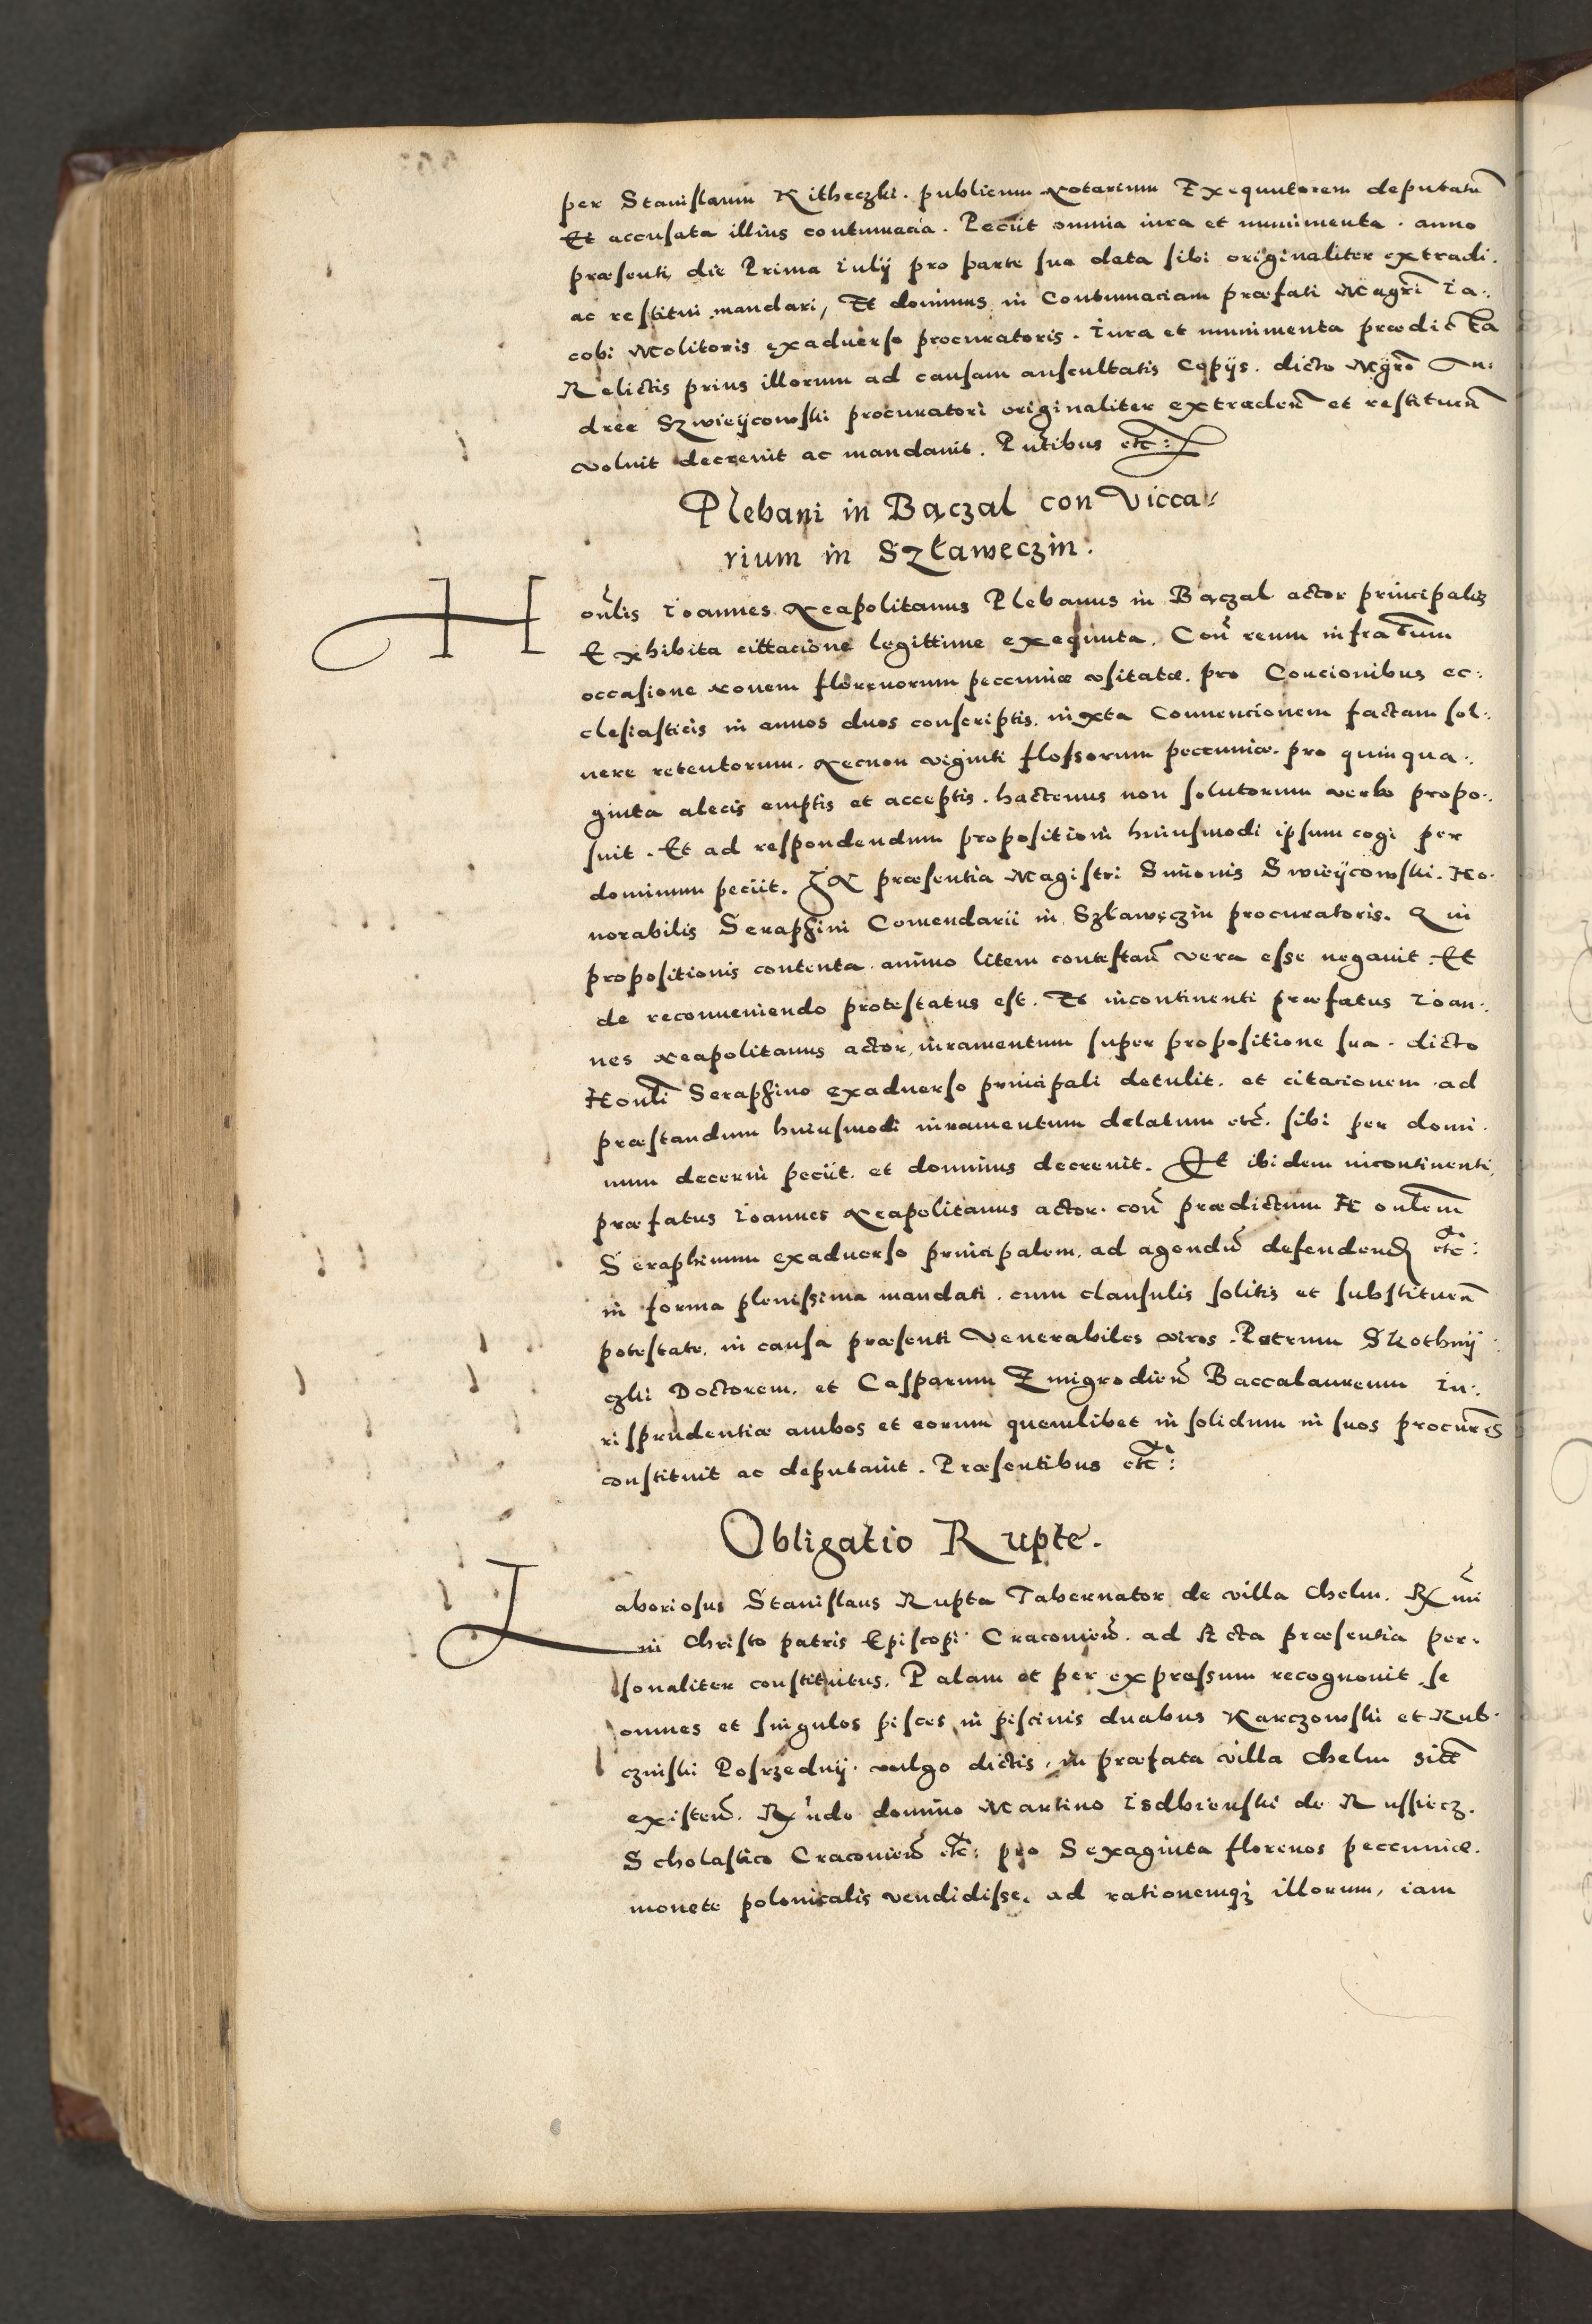 per Stanislaum Kitheczki. publicum Notarium Exequutorem deputatū
Et accusata illius contumacia. Peciit omnia iura et munimenta. anno
præsenti die Prima Iulij pro parte sua data sibi originaliter extradi.
ac restitui mandari, Et dominus in Contumaciam præfati Magrī Ia.,
cobi Molitoris exaduerso procuratoris. Iura et munimenta prædicta
Relictis prius illorum ad causam auscultatis Copijs. dicto Mgrō An:
dree Szwieÿcowski procuratori originaliter extradeñ et restitueñ
voluit decreuit ac mandauit. Pntibus etc:
Plebani in Bączal con Vicca:
rium in Szławęczin.
Honlis Ioannes Neapolitanus Plebanus in Bączal actor principalis
Exhibita cittacione legittime exequuta. Coñ reum infratum
occasione nouem florenorum peccuniæ vsitatæ. pro Concionibus ec:
clesiasticis in annos duos conscriptis. iuxta Conuencionem factam sol:
uere retentorum. Necnon viginti flossorum peccuniæ. pro quinqua.,
ginta alecis emptis et acceptis. hactenus non solutorum verbo propo:
suit. Et ad respondendum propositioni huiusmodi ipsum cogi per
dominum peciit. In præsentia Magistri Simonis Swieÿcowski. Ho.
norabilis Seraphini Comendarii in Szławęczin procuratoris. Qui
propositionis contenta. animo litem contestañ vera esse negauit. Et
de reconueniendo protestatus est. Et incontinenti præfatus Ioan:
nes Neapolitanus actor, iuramentum super propositione sua. dicto
Honli Seraphino exaduerso principali detulit. et citacionem ad
præstandum huiusmodi iuramentum delatum etc. sibi per domi.
num decerni peciit. et dominus decreuit. Et ibidem incontinenti,
præfatus Ioannes Neapolitanus actor. coñ prædictum Honlem
Seraphinum exaduerso principalem. ad agendū defendend etc:
in forma plenissima mandati. cum clausulis solitis et substitueñ
potestate. in causa præsenti Venerabiles viros. Petrum Skothnÿ
czki Doctorem. et Casparum Zmigrodieñ Baccalaureum Iu:
risprudentiæ ambos et eorum quemlibet in solidum in suos procurēs
constituit ac deputauit. Præsentibus etc:
Obligatio Rupte.
Laboriosus Stanislaus Rupta Tabernator de villa Chelm. Rmi
in Christo patris Episcopi Cracovieñ. ad Acta præsentia per.
sonaliter constitutus. Palam et per expressum recognouit se
omnes et singulos pisces in piscinis duabus Karczowski et Rub.
cziński Posrzednÿ. vulgo dictis, in præfata villa Chelm sitē
existeñ. Rndo domino Martino Isdbienski de Russiecz.
Scholastico Cracovieñ etc: pro Sexaginta florenos peccuniæ.
monete polonicalis vendidisse. ad rationemq3 illorum, iam